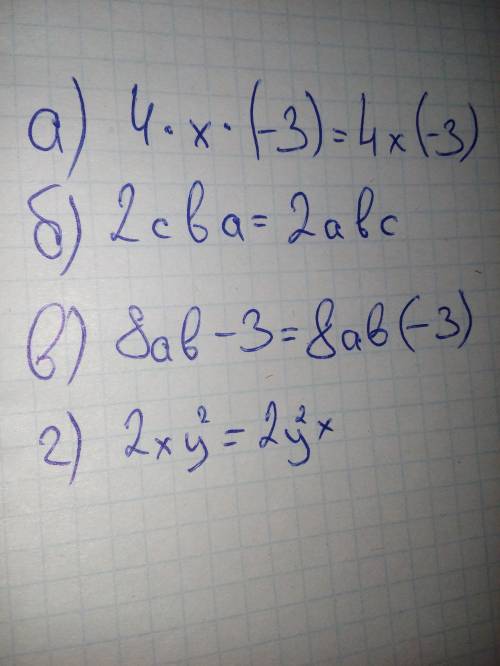 а) 4·x·(-3)=4x(-3)
б) 2cba=2abc
в) 8ab-3=8ab(-3)
г) 2xy²=2y²x